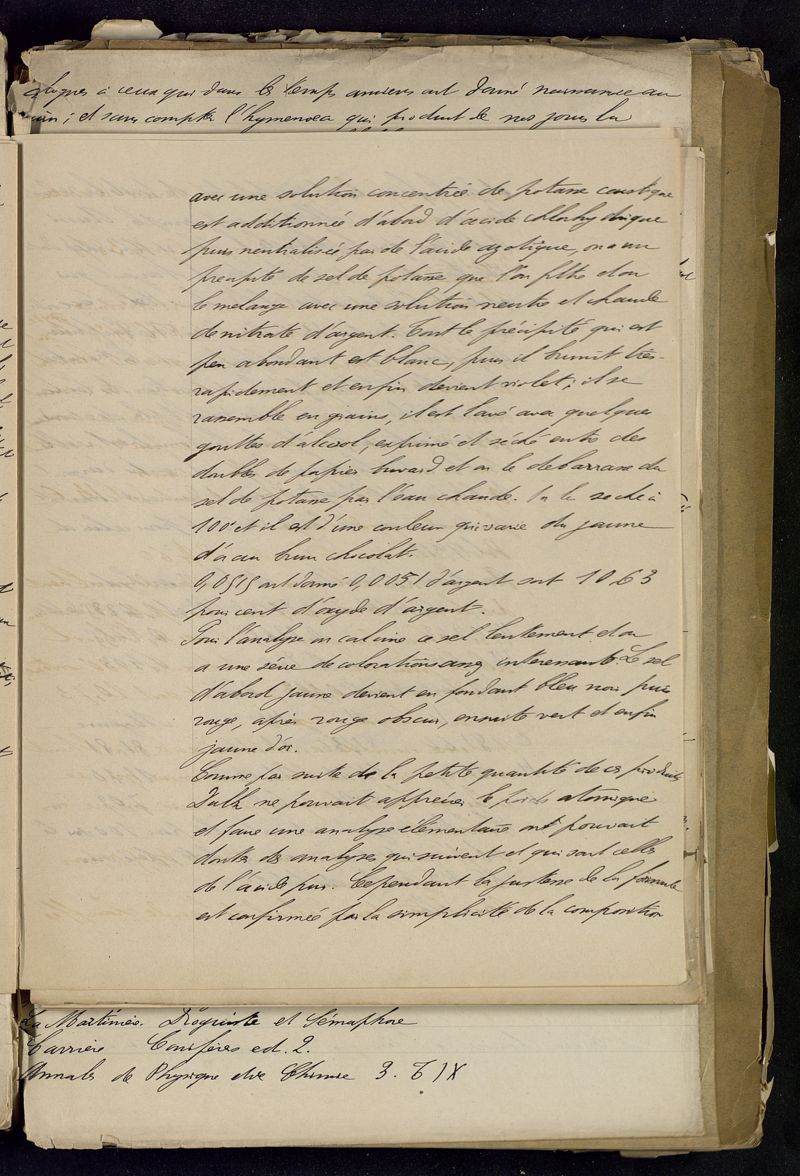 à ceux qui dans les temps anciens ont donné naissance au
; et sans compter l'hymenoea qui produit de nos jours la
avec une solution concentrée de potasse caustique
est additionnée d'abord d'acide chlorhydrique
puis neutralisée par de l'acide azotique, on a un
précipité de sel de potasse que l'on filtre et on
le mélange avec une solution neutre et chaude
de nitrate d'argent. Tout le précipité qui est
peu abondant est blanc, puis il brunit très-
rapidement et enfin devient violet; il se
rassemble en grains, il est lavé avec quelques
gouttes d'alcool, exprimé et séché entre des
doubles de papier buvard et on le débarrasse du
sel de potasse par l'eau chaude. On le sèche à
100° et il est d'une couleur qui varie du jaune
d'or au brun chocolat.
0,0515 ont donné 0,0051 d'argent soit 10 63
pour cent d'oxyde d'argent.
Pour l'analyse on calcine ce sel lentement et on
a une série de colorations intéressante Le sel
d'abord jaune devient en fondant bleu noir puis
rouge, après rouge obscur, ensuite vert et enfin
jaune d'or.
Comme par suite de la petite quantité de ces produits
Dulk ne pouvait apprécier le poids atomique
et faire une analyse élémentaire on pouvait
douter des analyses qui suivent et qui sont celles
de l'acide pur. Cependant la justesse de la formule
est confirmée par la simplicité de la composition
La Martinière. Droguiste et Sémaphore
Carrière Conifères ed. 2.
Annales de Physique et de Chimie 3. T IX